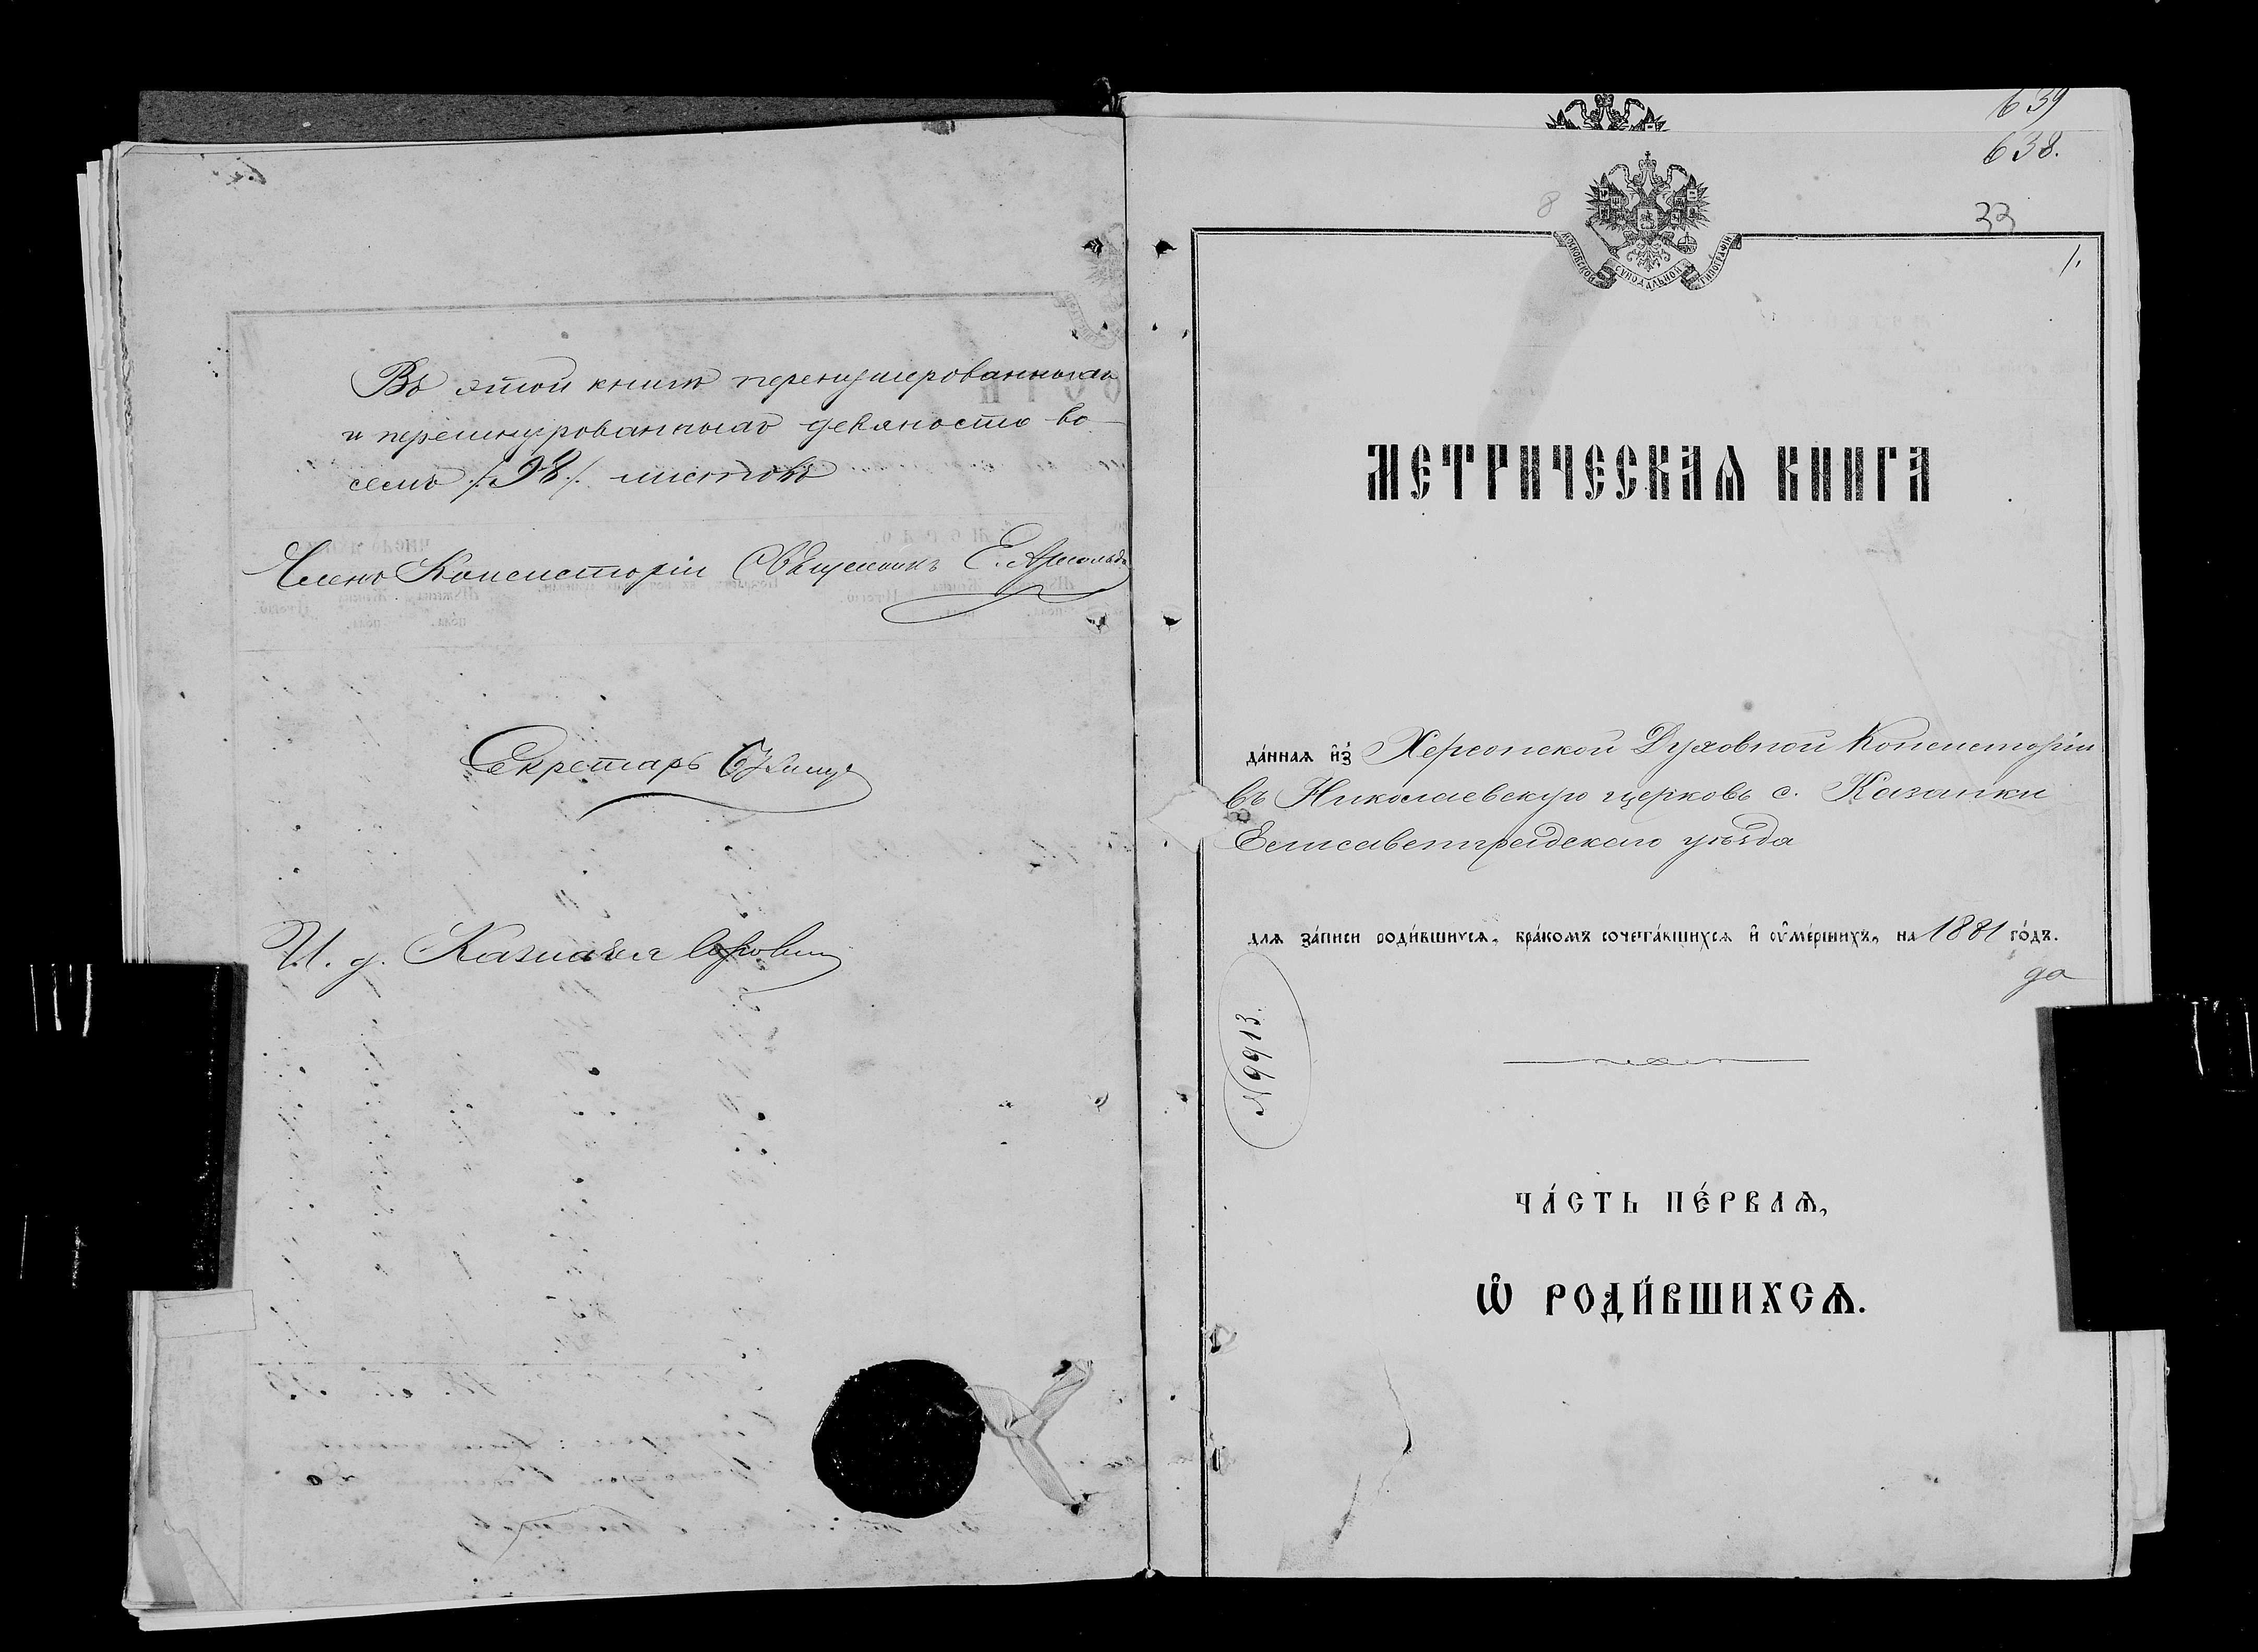 Въ этой книгѣ перенумерованныхъ
и перешнурованныхъ девяносто во-
семь /98/. листовъ
Членъ Консисторіи Священникъ Е. Арнольдъ
Секретарь
И. д. Казначея
639
638.
8
33
1.
МОСКОВСКОЙ СѴНОДАЛЬНОЙ ТИПОГРАФІИ
МЕТРИЧЕСКАѦ КНИГА
да́ннаѧ и҆з̾ Херсонской Духовной Консисторіи
въ Николаевскую церковь с. Казанки
Елисаветградскаго уѣзда
длѧ за́писи роди́вшихсѧ, бра́комъ сочета́вшихсѧ и҆ ѹ҆ме́ршихъ, на 1881 го́дъ.
да
№ 9913.
ЧА́СТЬ ПЕ́РВАѦ,
Ѽ РОДИ́ВШИХСѦ.